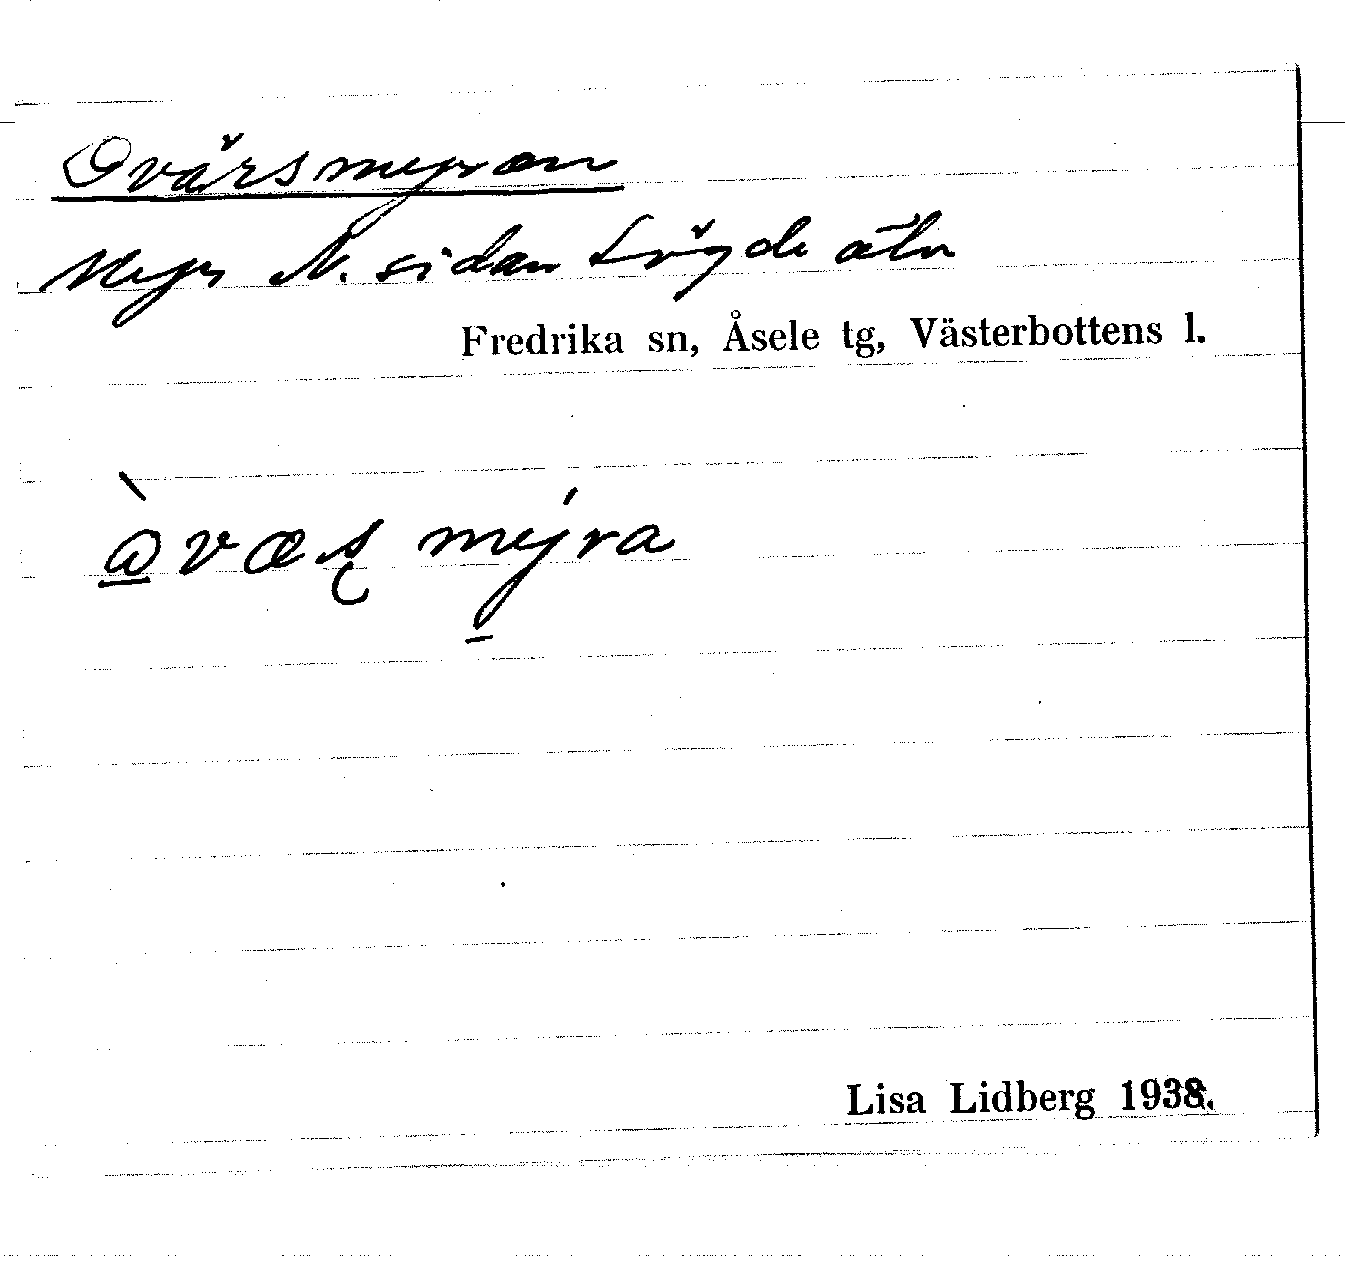 Ovärsmyran
Myr N. sidan Lögde älv
Fredrika sn, Åsele tg, Västerbottens l.
Lisa Lidberg 1938.